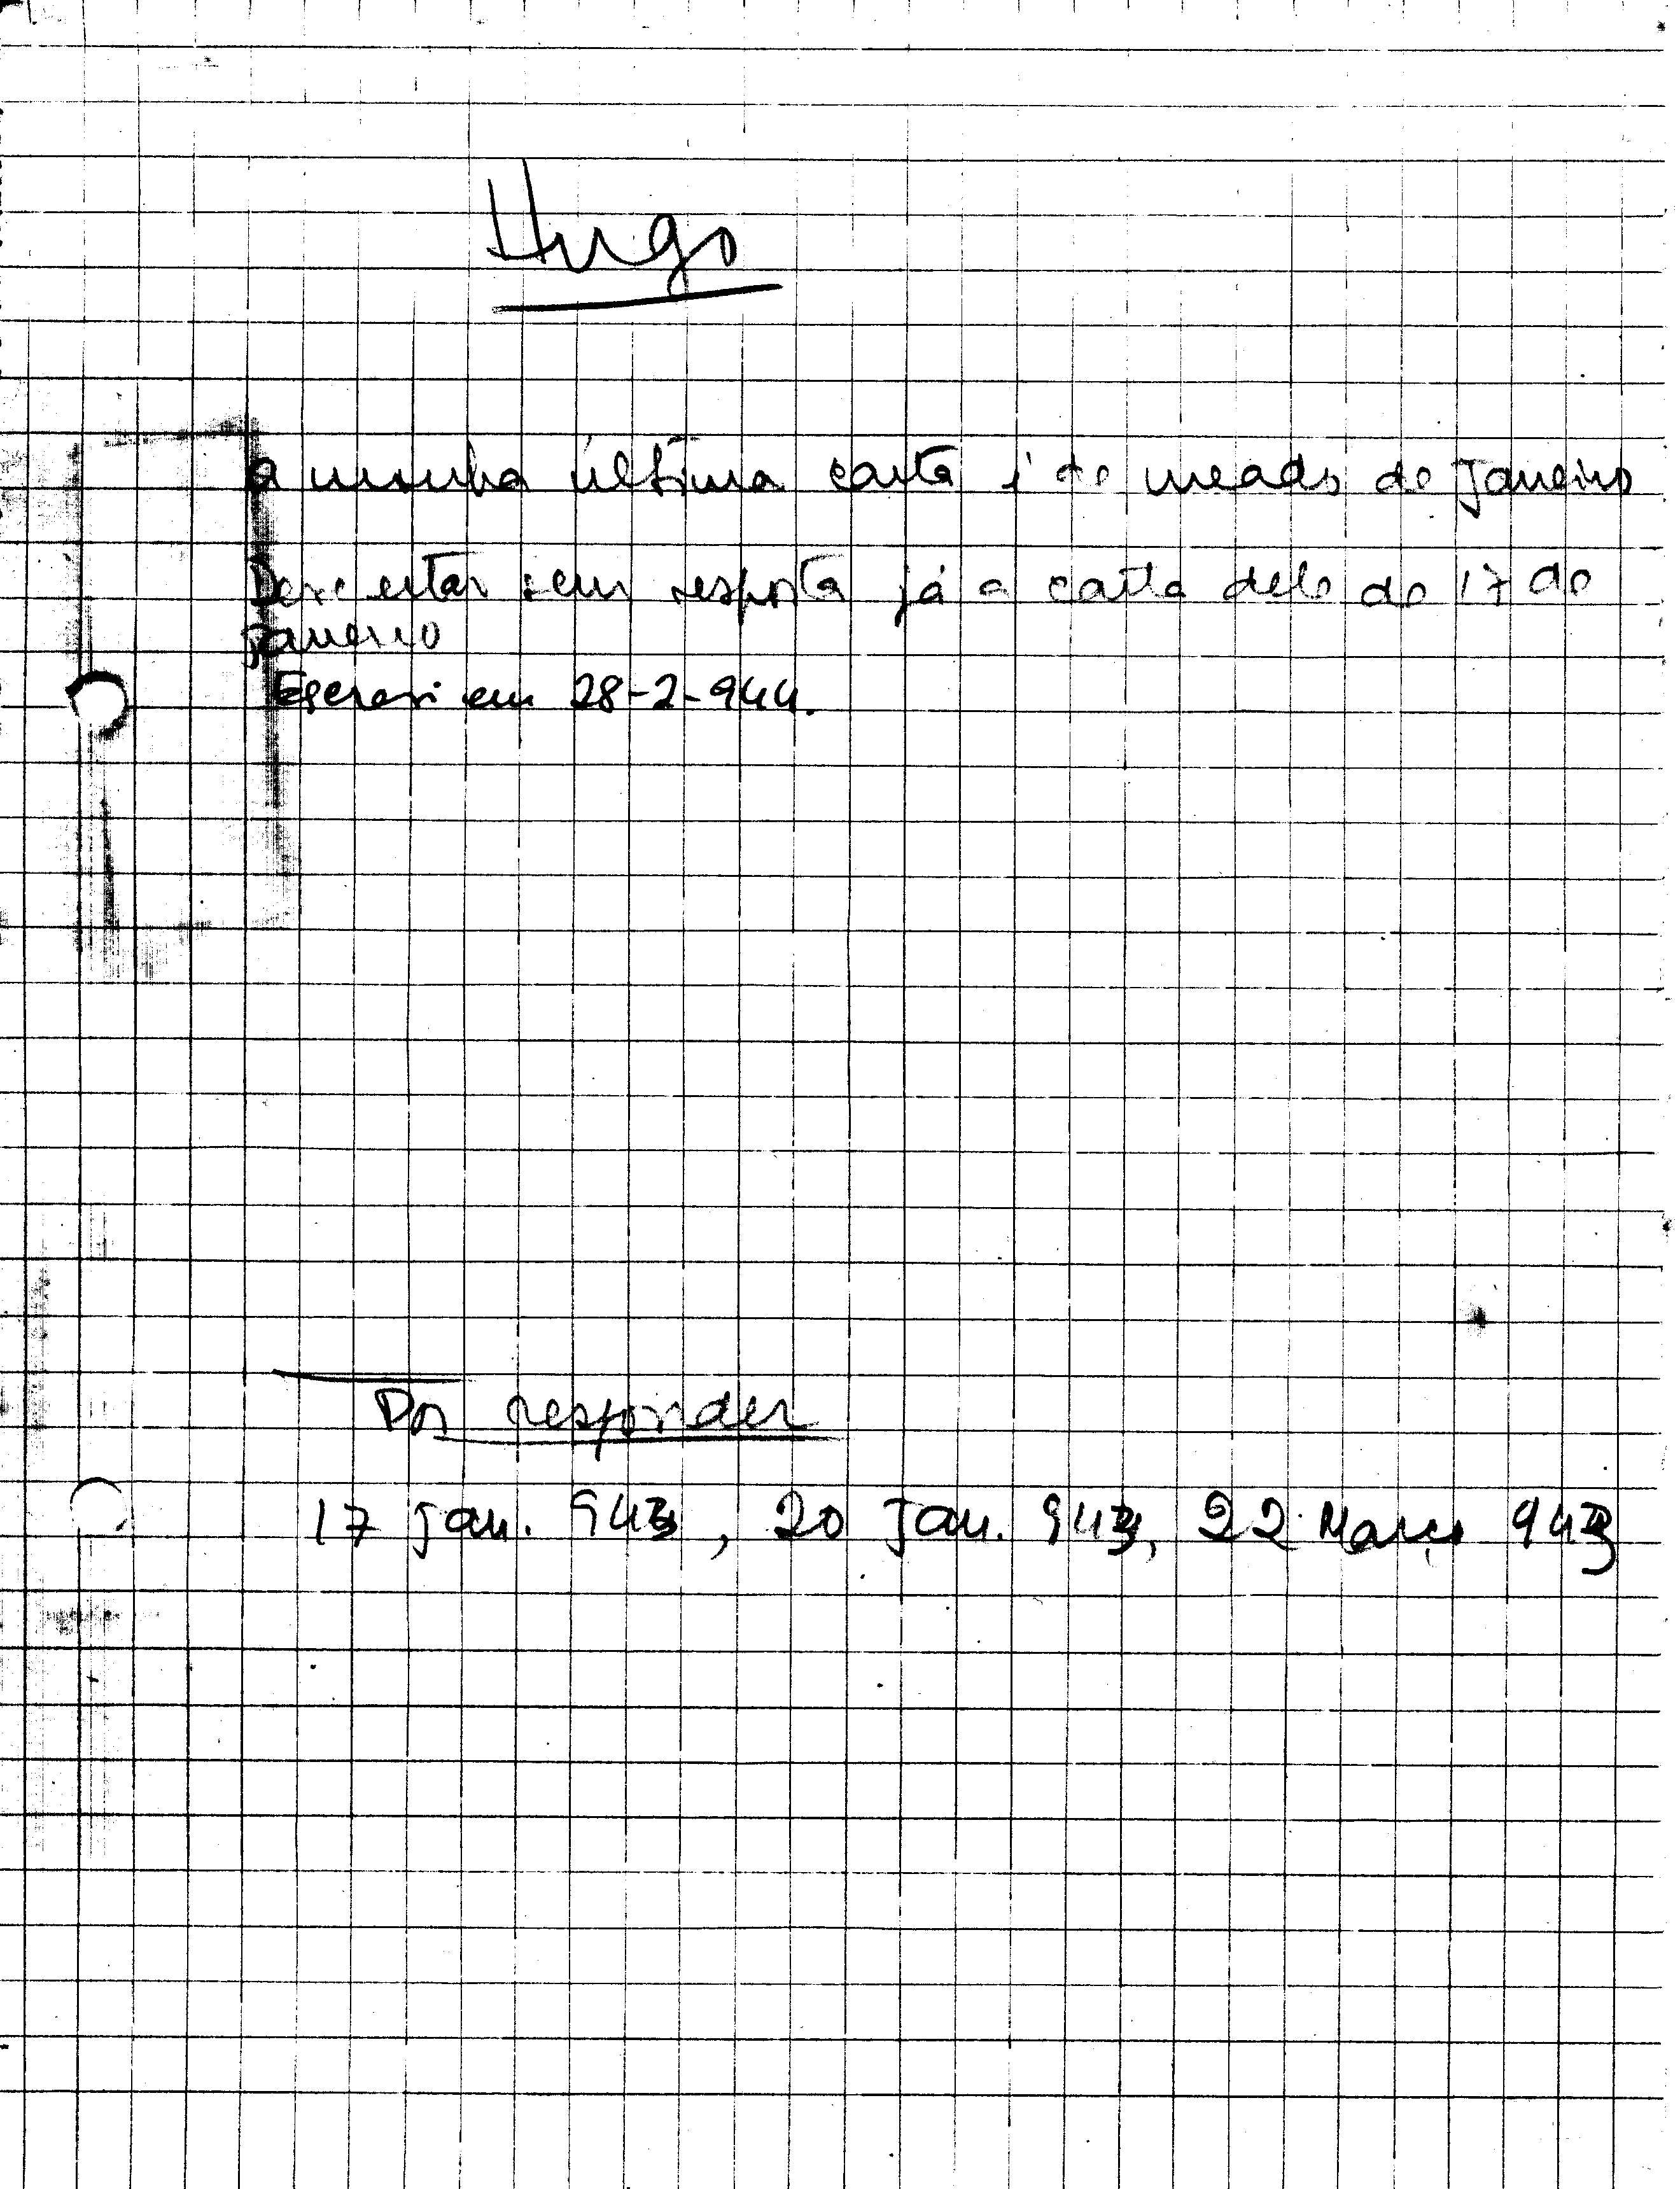 Hugo
a minha última carta é de meados de Janeiro
Deve estar sem resposta já a carta dele de 17 de
Janeiro
Escrevi em 28-2-944.
Por responder
17 Jan. 943, 20 Jan. 943, 22 Março 943